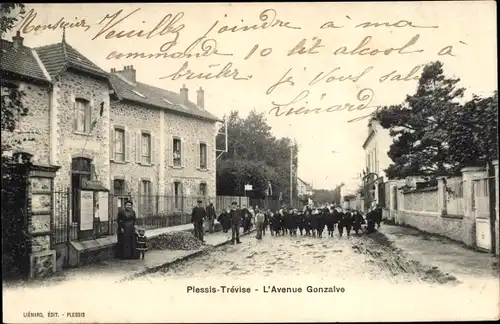 Monsieur, Veuillez joindre à ma
commande 10 lit alcool à
brûler je Vous salue
Liénard
Plessis-Trévise - L'Avenue Gonzalve
LIÉNARD, ÉDIT. - PLESSIS